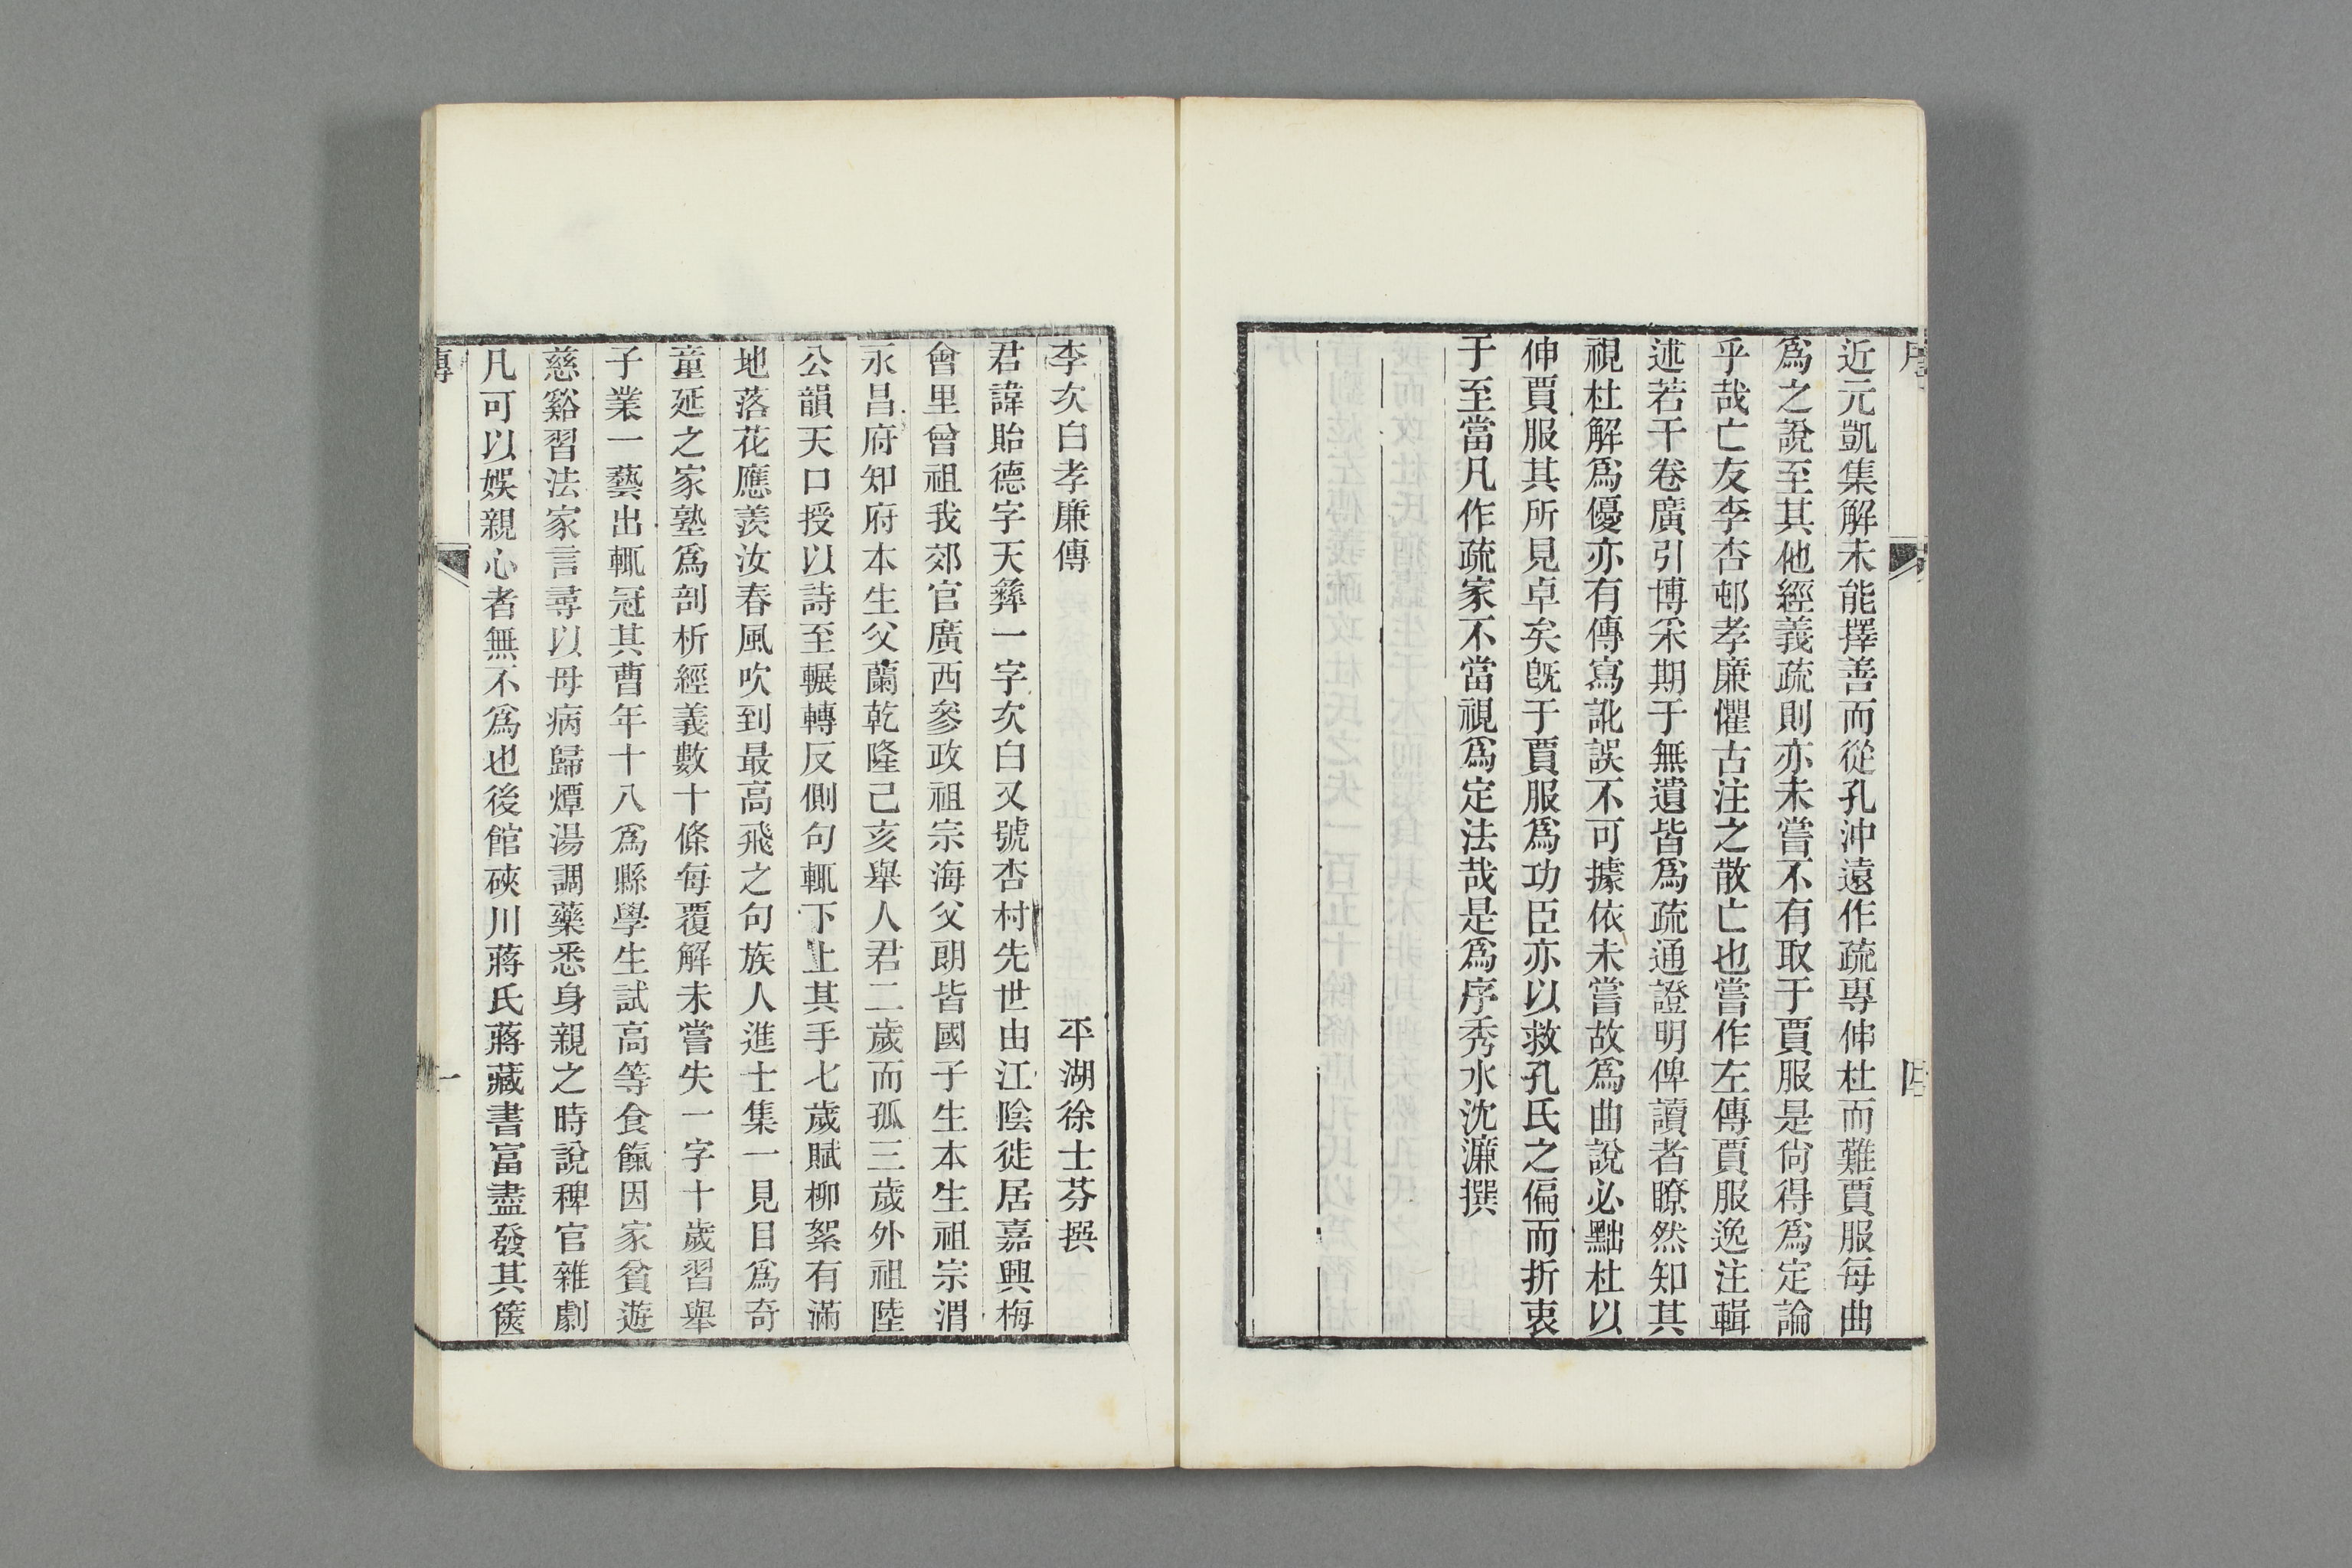 近元凱集解未能擇善而從孔沖遠作疏專伸杜而難賈服每曲
爲之說至其他經義疏則亦未嘗不有取于賈服是尙得爲定論
乎哉亡友李杏邨孝廉懼古注之散亡也嘗作左傳賈服逸注輯
述若干卷廣引博采期于無遺皆爲疏通證明俾讀者瞭然知其
視杜解爲優亦有傳寫訛誤不可據依未嘗故爲曲說必黜杜以
伸賈服其所見卓矣旣于賈服爲功臣亦以救孔氏之偏而折衷
于至當凡作疏家不當視爲定法哉是爲序秀水沈濂撰
李次白孝廉傳
平湖徐士芬撰
君諱貽德字天彝一字次白又號杏村先世由江陰徙居嘉興梅
會里曾祖我郊官廣西參政祖宗海父朗皆國子生本生祖宗渭
永昌府知府本生父蘭乾隆己亥舉人君二歲而孤三歲外祖陸
公韻天口授以詩至輾轉反側句輒下上其手七歲賦柳絮有滿
地落花應羨汝春風吹到最高飛之句族人進士集一見目爲奇
童延之家塾爲剖析經義數十條每覆解未嘗失一字十歲習舉
子業一藝出輒冠其曹年十八爲縣學生試高等食餼因家貧遊
慈谿習法家言尋以母病歸燂湯調藥悉身親之時說稗官雜劇
凡可以娛親心者無不爲也後館硤川蔣氏蔣藏書富盡發其篋
傳
一